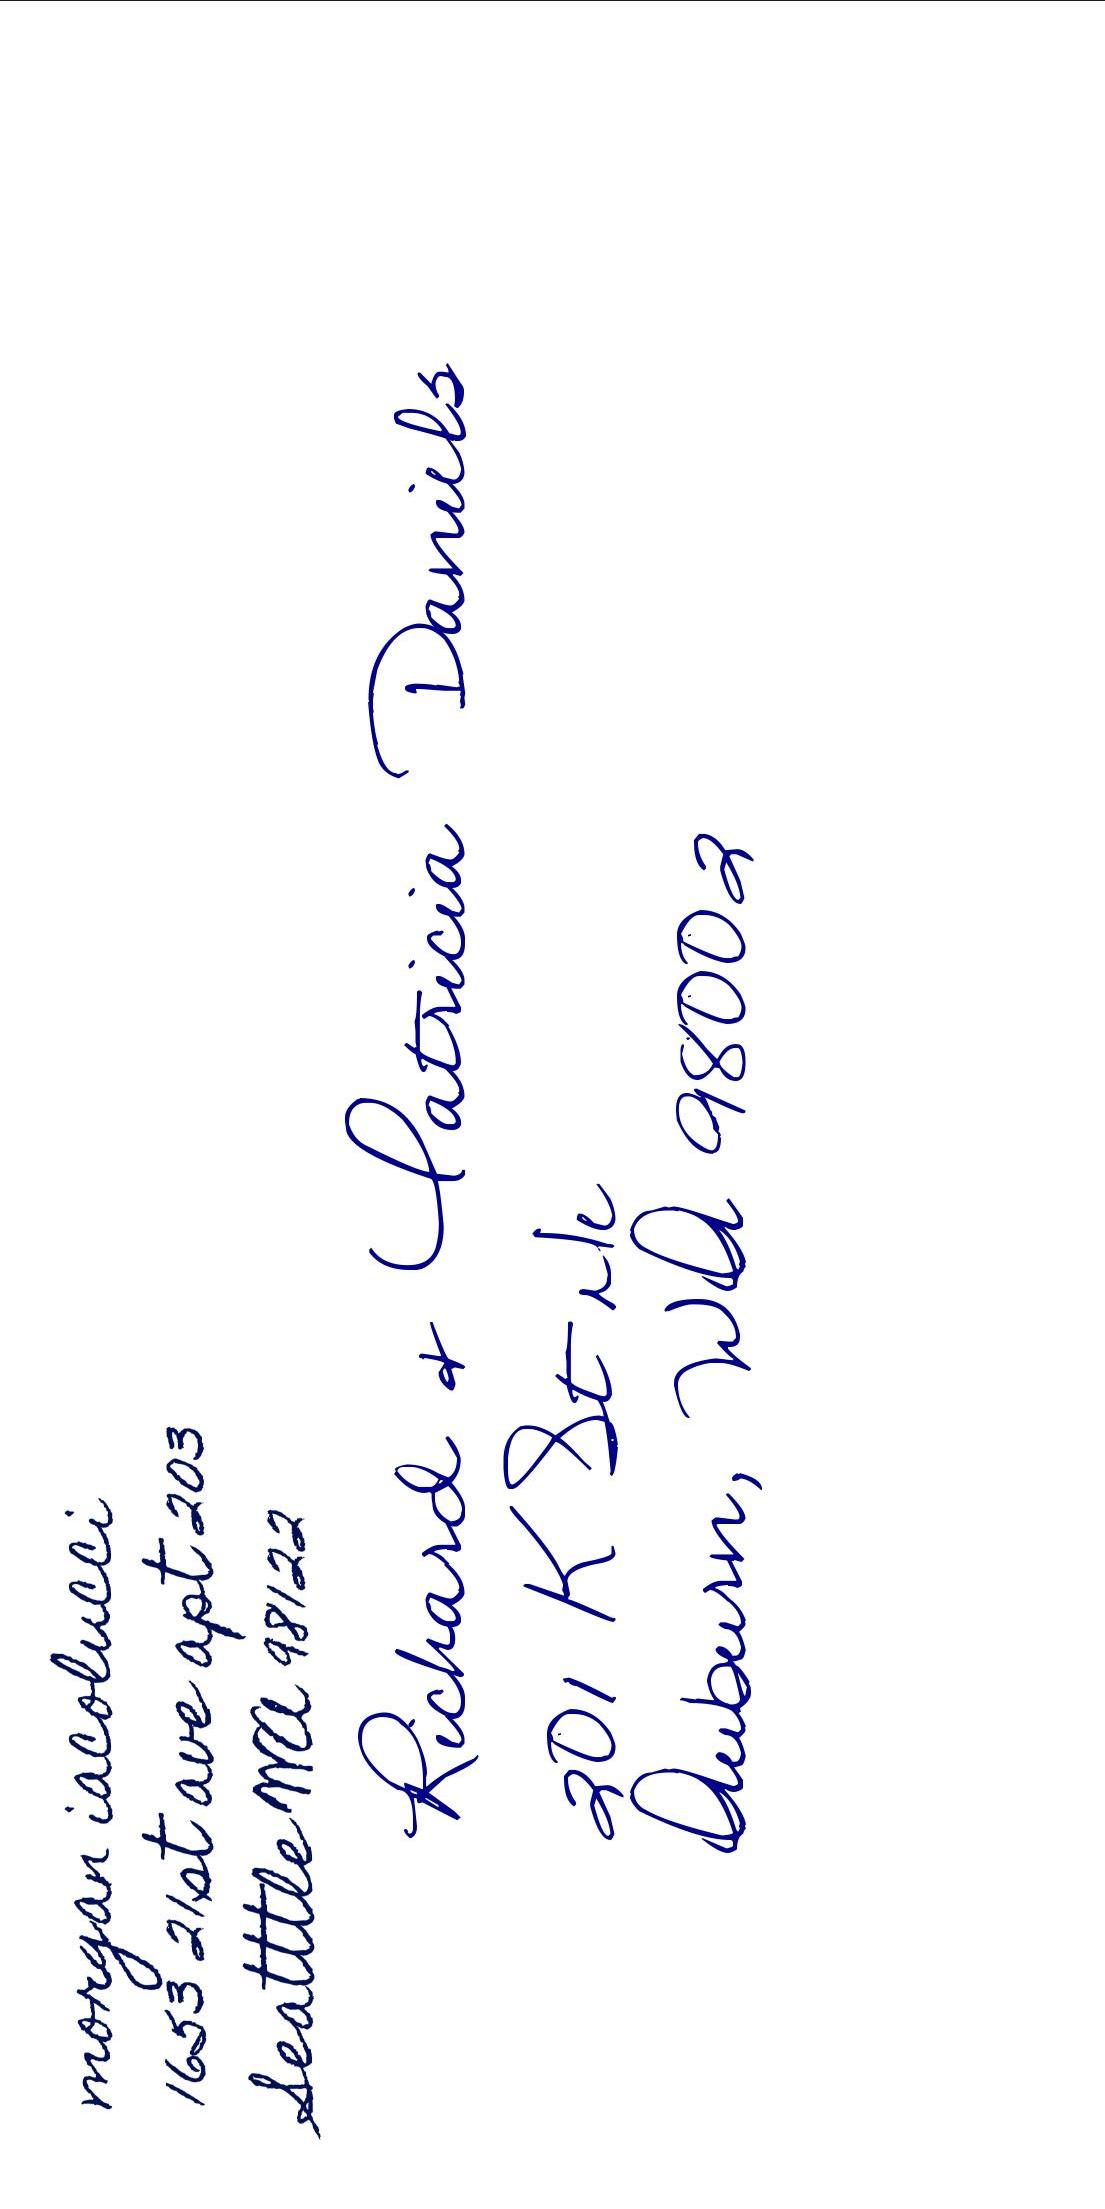 morgan iacolucci
1653 21st ave apt 203
Seattle WA 98122
Richard & Patricia Daniels
201 K St NE
Auburn, WA 98002